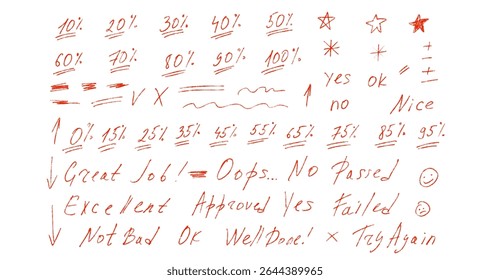 10% 20% 30% 40% 50%
60% 70% 80% 90% 100%
yes ok
V X no Nice
0% 15% 25% 35% 45% 55% 65% 75% 85% 95%
Great Job! = Oops... No Passed
Excellent Approved Yes Failed
Not Bad OK Well Done! × Try Again
shutterstock
IMAGE ID: 2644389965
www.shutterstock.com